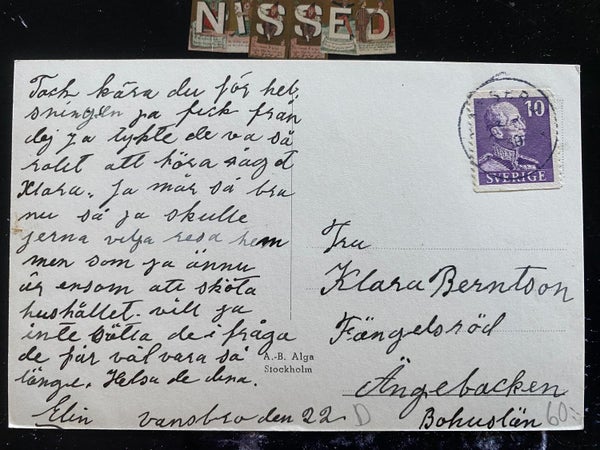 NISSED
Tack kära du för hel-
sningen ja fick från
dej ja tykte de va så
rolit att höra något
Klara. Ja mår så bra
nu så ja skulle
jerna velja resa hem
men som ja ännu
är ensam att sköta
hushållet vill ja
inte sätta de i fråga
de får väl vara så
länge. Helsa de dina.
Elin vansbro den 22
A.-B. Alga
Stockholm
10
SVERIGE
Fru
Klara Berntson
Fängelsröd
Ängebacken
Bohuslän
60:-